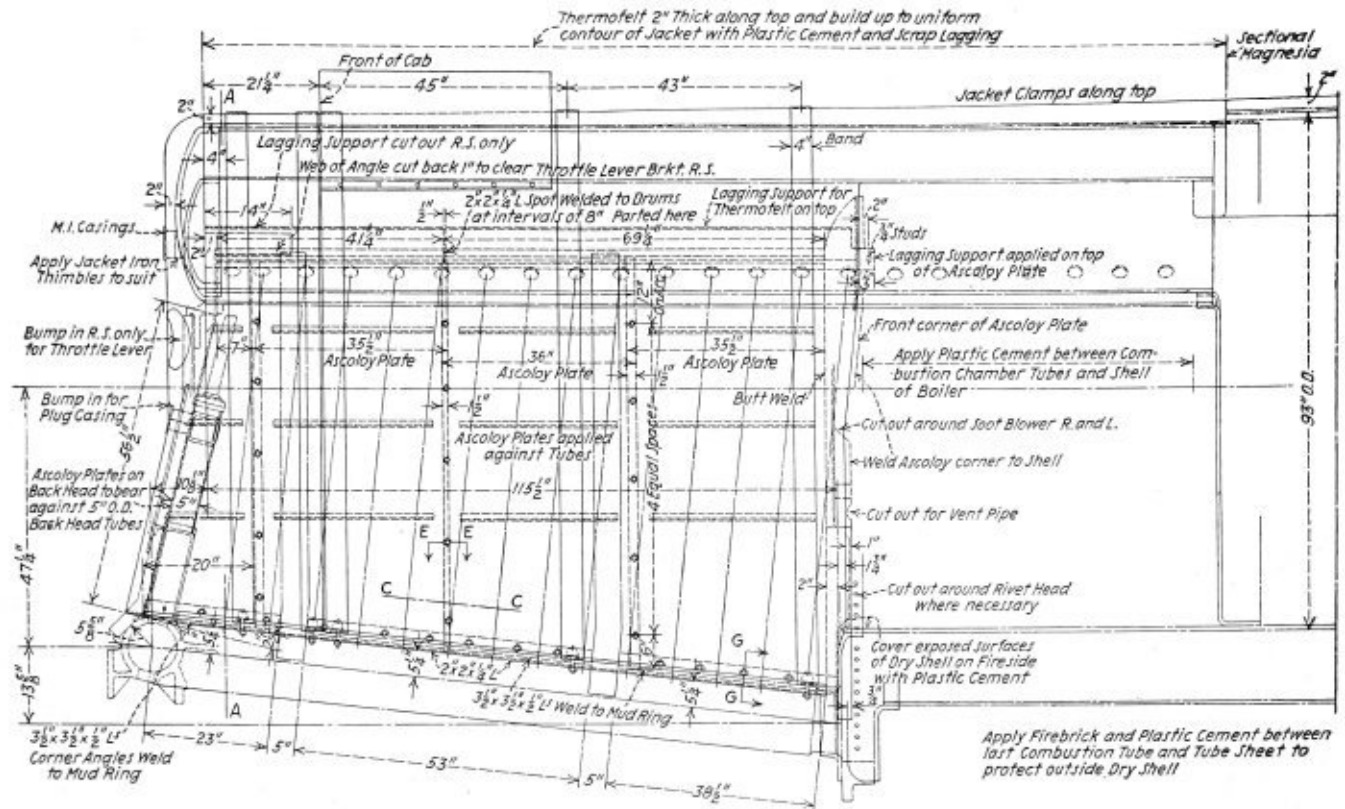 Thermofelt 2" Thick along top and build up to uniform
contour of Jacket with Plastic Cement and Scrap Lagging
Sectional
Magnesia
Front of Cab
21 1/4"
45"
43"
2"
A
2"
Jacket Clamps along top
4"
Lagging Support cut out R.S. only
4"
Band
Web of Angle cut back 1" to clear Throttle Lever Brkt. R.S.
2"
14"
1/2"
2"x2"x1/4" L Spot Welded to Drums
at intervals of 8" Parted here
Lagging Support for
Thermofelt on top
2"
3/4" Studs
M.I. Casings
2"
41 1/4"
69 1/4"
Lagging Support applied on top
of Ascoloy Plate
Apply Jacket Iron
Thimbles to suit
12"
Bump in R.S. only
for Throttle Lever
7"
35 1/2"
Ascoloy Plate
36"
Ascoloy Plate
35 1/2"
Ascoloy Plate
1 1/2"
Front corner of Ascoloy Plate
Apply Plastic Cement between Com-
bustion Chamber Tubes and Shell
of Boiler
93" O.D.
Bump in for
Plug Casing
56 1/2"
1 1/2"
Butt Weld
Cut out around Soot Blower R. and L.
Ascoloy Plates applied
against Tubes
4 Equal Spaces
Weld Ascoloy corner to Shell
Ascoloy Plates on
Back Head to bear
against 5" O.D.
Back Head Tubes
5"
115 1/2"
Cut out for Vent Pipe
E
E
47 1/4"
20"
1"
1 3/4"
2"
Cut out around Rivet Head
where necessary
C
C
5 5/8"
G
G
6"
2"x2"x1/4" L
3 1/2"x3 1/2"x1/2" Ls Weld to Mud Ring
Cover exposed surfaces
of Dry Shell on Fireside
with Plastic Cement
13 5/8"
A
3 1/2"x3 1/2"x1/2" Ls
Corner Angles Weld
to Mud Ring
23"
5"
53"
5"
38 1/2"
Apply Firebrick and Plastic Cement between
last Combustion Tube and Tube Sheet to
protect outside Dry Shell